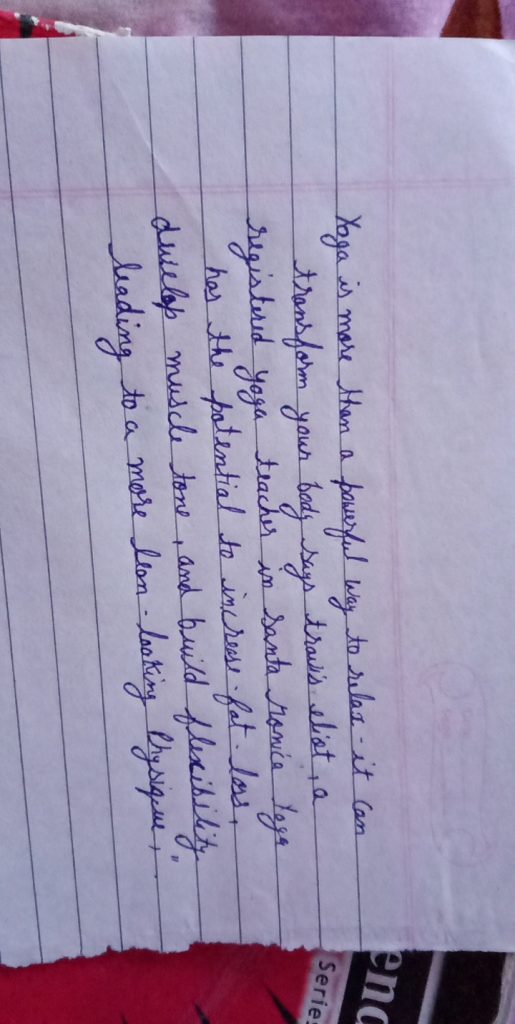 Yoga is more than a powerful way to relax - it can
transform your body says travis eliot, a
registered yoga teacher in santa monica Yoga
has the potential to increase - fat - loss,
develop muscle tone, and build flexibility
leading to a more lean - looking Physique,"
Series